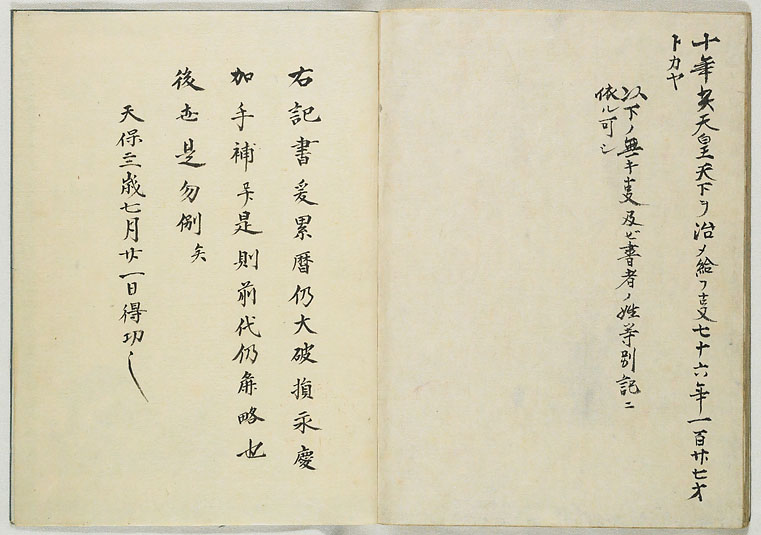 十年矣天皇天下ヲ治メ給フ支七十六年一百廿七才
トカヤ
以下ノ無キ支及ビ書者ノ姓等別記ニ
依ル可シ
右記書爰累暦仍大破損永慶
加手補是則前代仍略也
後是勿例矣
天保三歳七月廿一日得功